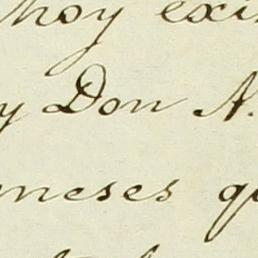 hoy exi
y Don A.
meses q